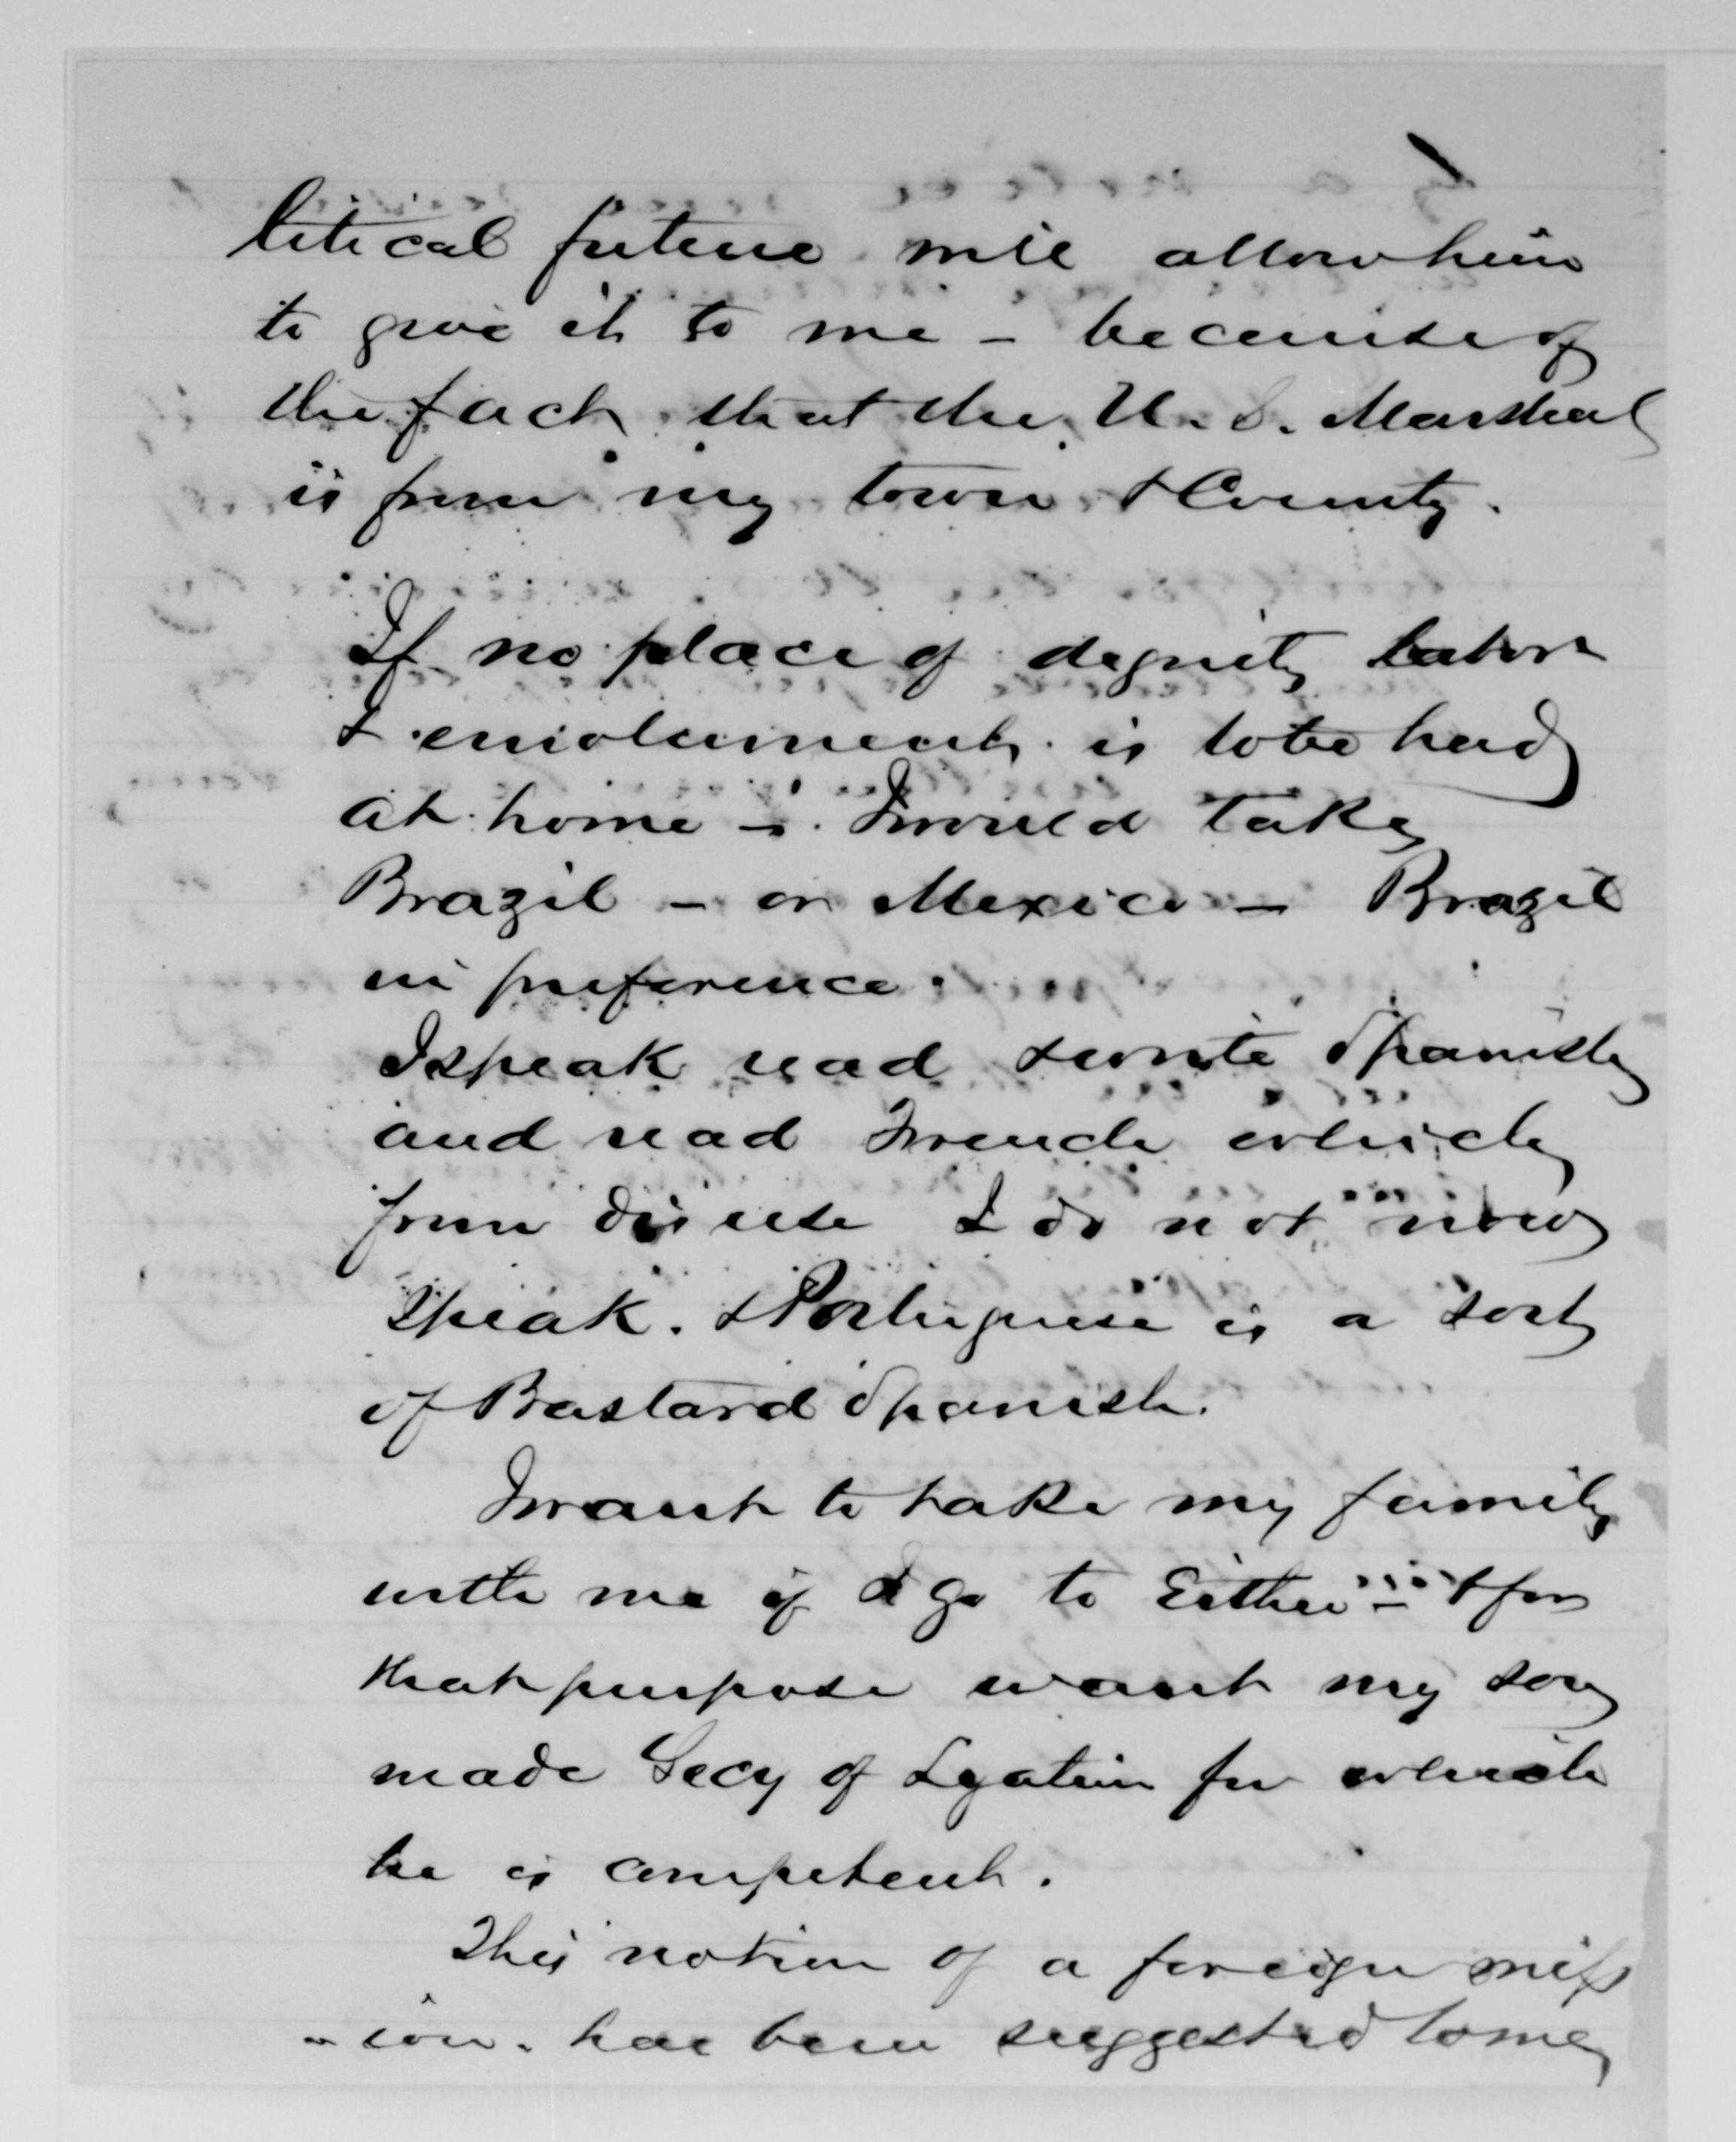 litical future will allow him
to give it to me - because of
the fact that the U. S. Marshal
is from my town & County.
If no place of dignity labor
& emolument is to be had
at home - I would take
Brazil - or Mexico - Brazil
in preference.
I speak read & write Spanish
and read French which
from disuse I do not now
speak. & Portuguese is a sort
of Bastard Spanish.
I want to take my family
with me if I go to Either - & for
that purpose want my son
made Secy of Legation for which
he is competent.
This notion of a foreign miss
-ion. has been suggested to me